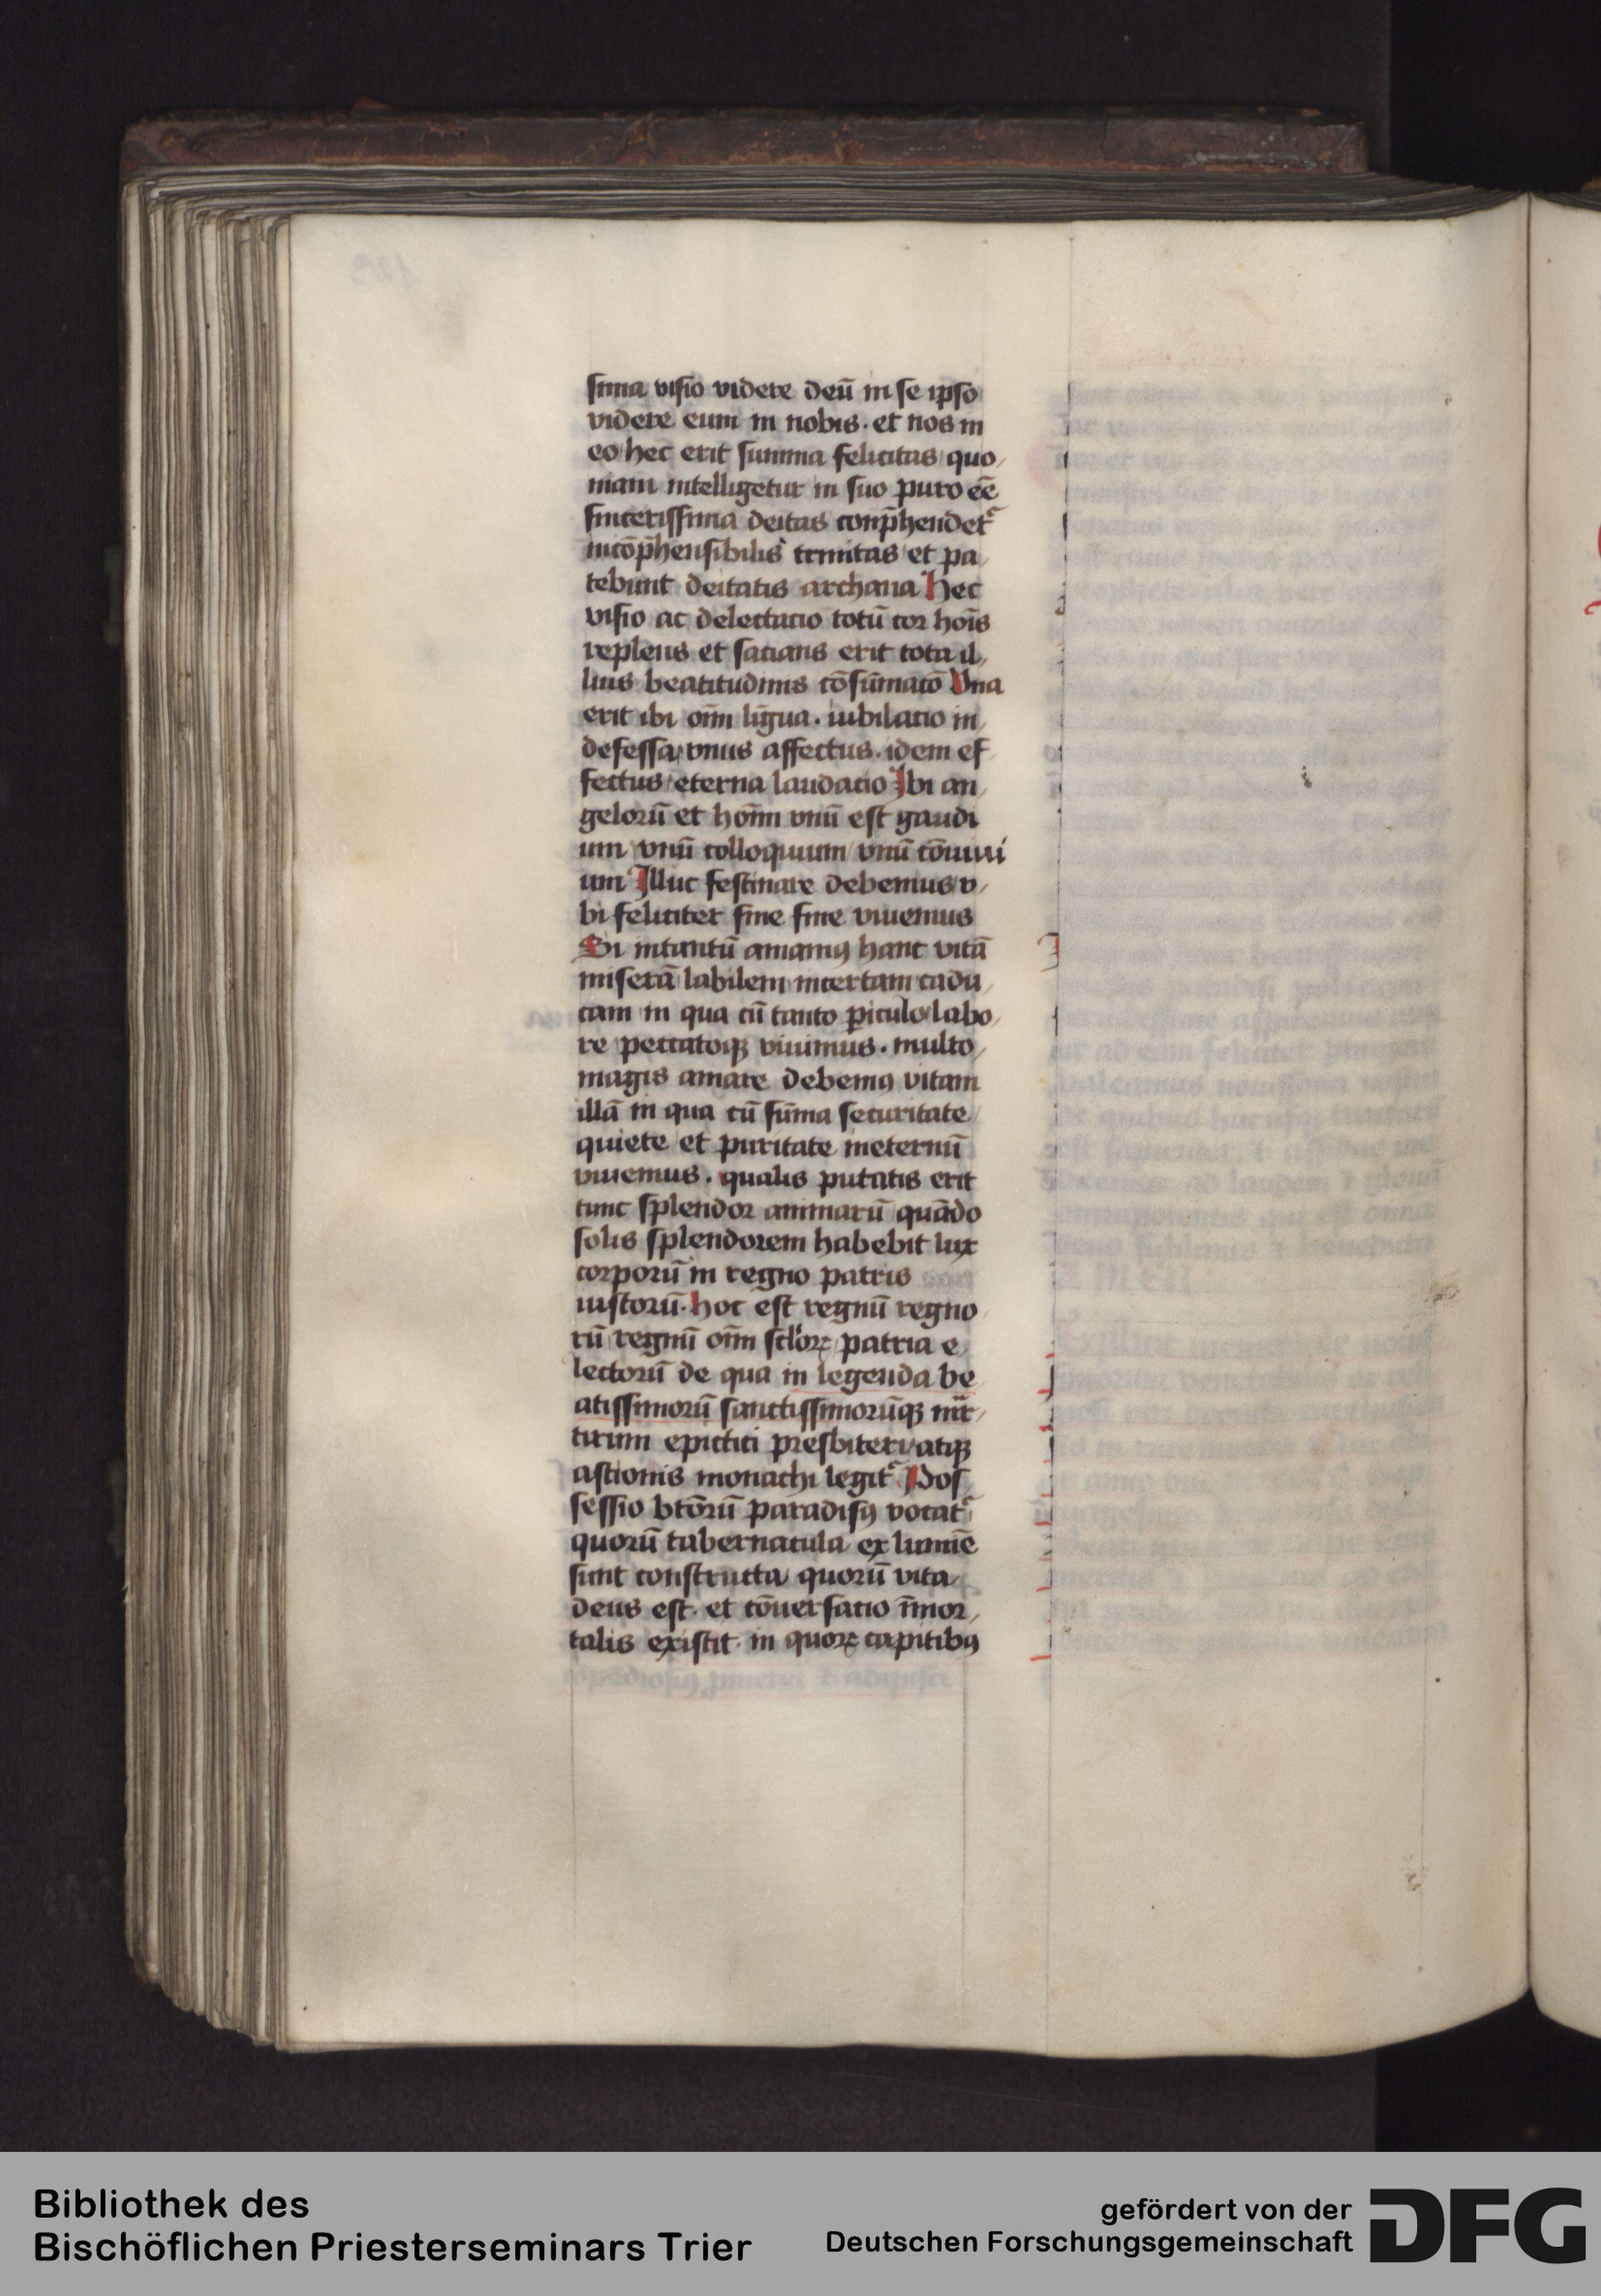 sima visio videre deū in se ipso
videre eum in nobis · et nos in
eo hec erit summa felicitas quo
niam intelligetur in suo puro eē
sincerissima deitas conp̄hendet
incōp̄hensibilis trinitas et pa
tebunt deitatis archana Hec
visio ac delectatio totū cor hoīs
replens et sacians erit tota il
lius beatitudinis cōsūmatō Una
erit ibi oīm līgua · iubilatio in
defessa vnus affectus · idem ef
fectus eterna laudatio Ibi an
gelorū et hoīm vnū est gaudi
um vnū colloquium vnū cōuiui
um Illuc festinare debemus v
bi feliciter sine fine viuemus
Si intantū amamꝰ hanc vitā
miserā labilem incertam cadu
cam in qua cū tanto ꝑiculo labo
re peccatoqꝫ viuimus · multo
magis amare debemꝰ vitam
illā in qua cū sūma securitate
quiete et puritate ineternū
viuemus · qualis putatis erit
tunc splendor animarū quādo
solis splendorem habebit lux
corporū in regno patris
iustorū · hoc est regnū regno
rū regnū oīm sctōꝝ patria e
lectorū de qua in legenda be
atissimorū sanctissimorūqꝫ mr̄
tirum epicteti presbiteri atqꝫ
astionis monachi legit Pos
sessio btōrū paradisꝰ vocat
quorū tabernacula ex lumīe
sunt constructa quorū vita
deus est · et cōuersatio īmor
talis existit · in quoꝝ capitibꝰ
Bibliothek des
Bischöflichen Priesterseminars Trier
gefördert von der
Deutschen Forschungsgemeinschaft
DFG